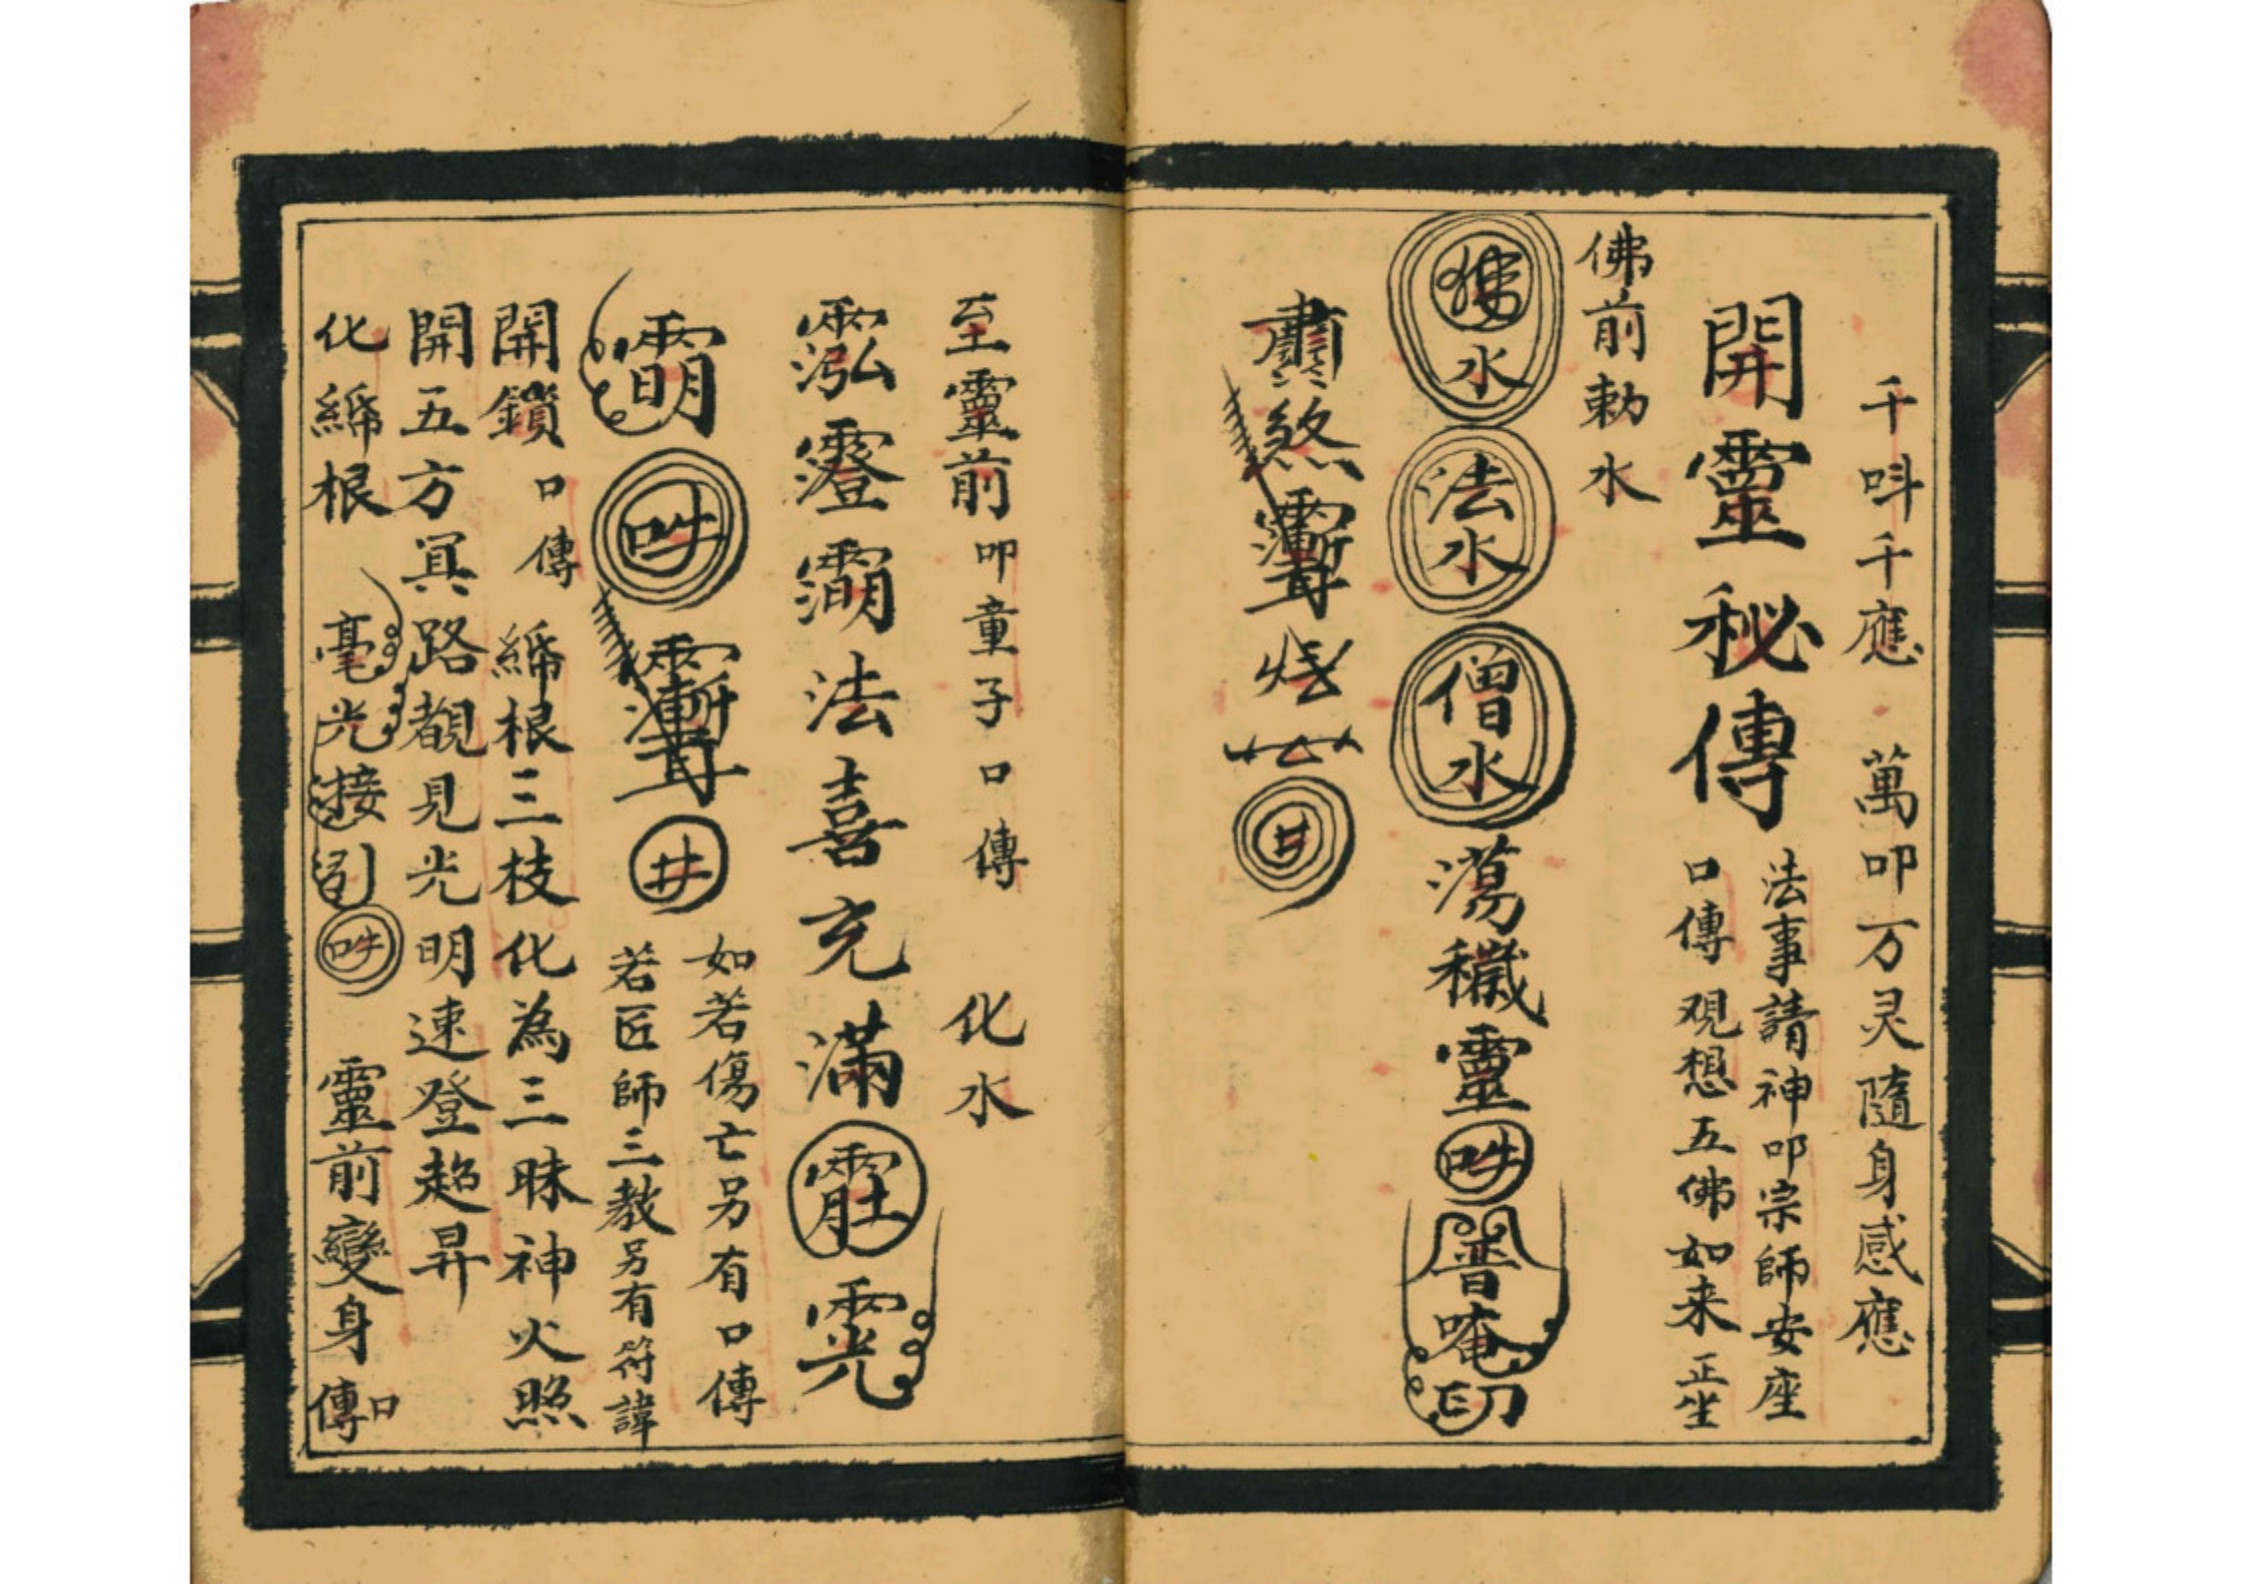 千呌千應 萬叩万灵隨身感應
開靈秘傳
法事請神叩宗師安座
口傳 观想五佛如来 正坐
佛前勅水
佛水 法水 僧水 蕩穢靈 普唵印
煞 燒 井
至靈前 叩童子口傳 化水
法喜充滿
井
如若傷亡另有口傳
若匠師三教另有符諱
開鎖 口傳 綿根三枝化為三昧神火照
開五方冥路覩見光明速登超昇
化綿根 毫光接引 靈前變身 口傳